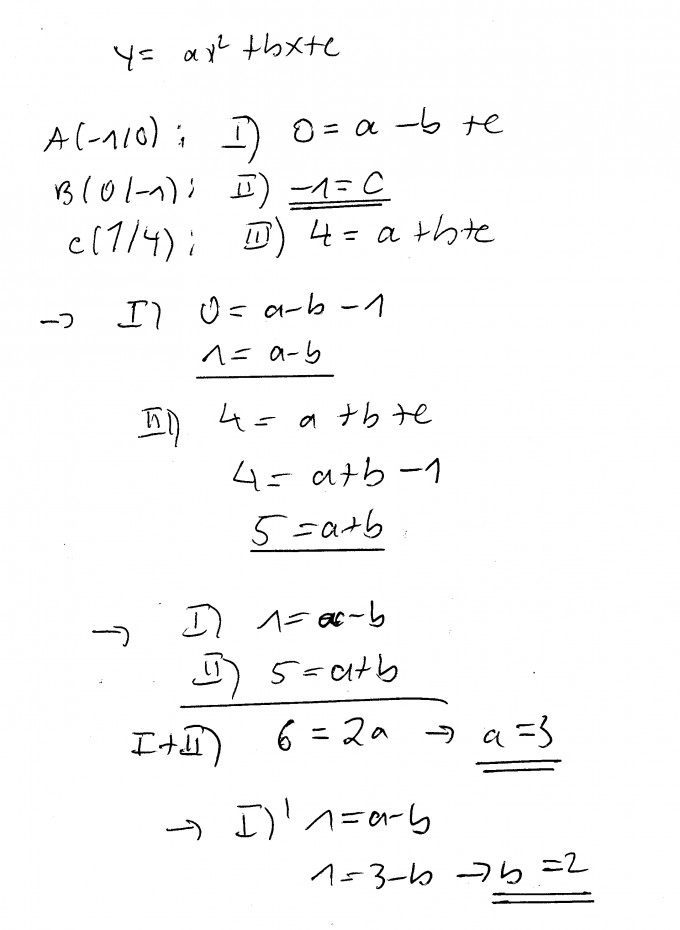 y = ax² + bx + c
A(-1/0) ; I) 0 = a - b + c
B(0/-1) ; II) -1 = C
C(1/4) ; III) 4 = a + b + c
→ I) 0 = a - b - 1
1 = a - b
III) 4 = a + b + c
4 = a + b - 1
5 = a + b
→ I) 1 = a - b
II) 5 = a + b
I + II) 6 = 2a → a = 3
→ I)' 1 = a - b
1 = 3 - b → b = 2